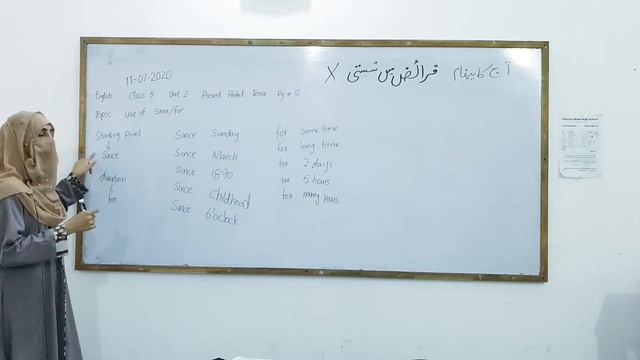 آج کا پیغام فرائض میں سستی X
11-07-2020
English Class 5 Unit 2 Present Perfect Tense Pg # 12
Topic use of Since/for
Starting Point
↓
Since
duration
↓
for
Since Sunday
Since March
Since 1890
Since Childhood
Since 6'oclock
for Some time
for long time
for 2 days
for 5 hours
for many years